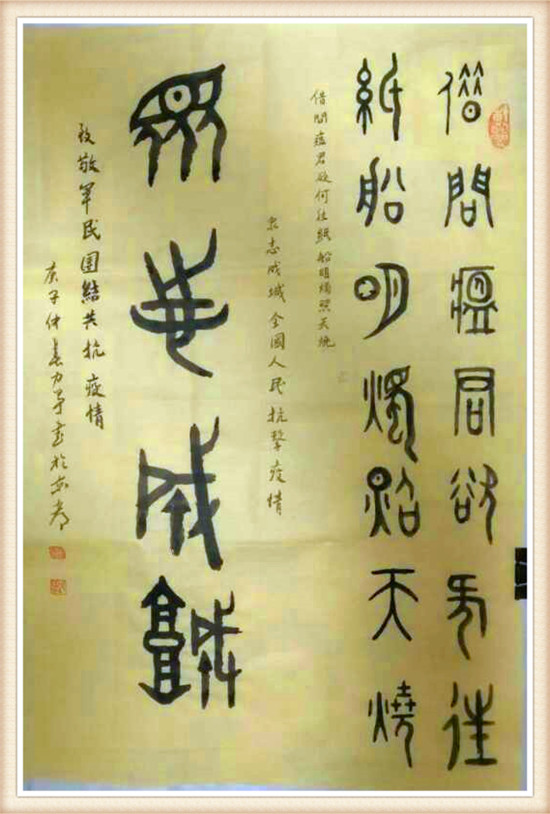 借問瘟君欲何往
紙船明燭照天燒
借問瘟君欲何往紙船明燭照天燒
衆志成城全國人民抗擊疫情
衆志成城
致敬軍民團結共抗疫情
庚子仲春力書於京都